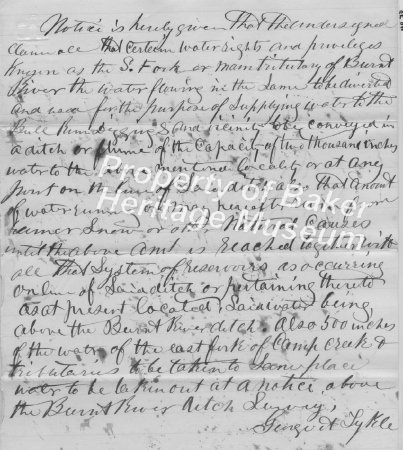 Notice is hereby given that the undersigned
claim all that certain water rights and privileges
known as the S. Fork or main tributary of Burnt
River the water flowing in the same to be diverted
and used for the purpose of supplying water to the
Bull Run & vicinity to be conveyed in
a ditch or flume of the capacity of two thousand inches
water to the mentioned locality or at any
point on the line of said ditch that amount
of water running
rains snow or other natural causes
until the above amt is reached together with
all that system of reservoirs as occurring
on line of said ditch or pertaining thereto
as at present located, said water being
above the Burnt River ditch. Also 500 inches
of the water of the east fork of Camp Creek &
tributaries to be taken to same place
water to be taken out at a notice above
the Burnt River ditch Survey,
George W Sykle
Property of Baker
Heritage Museum